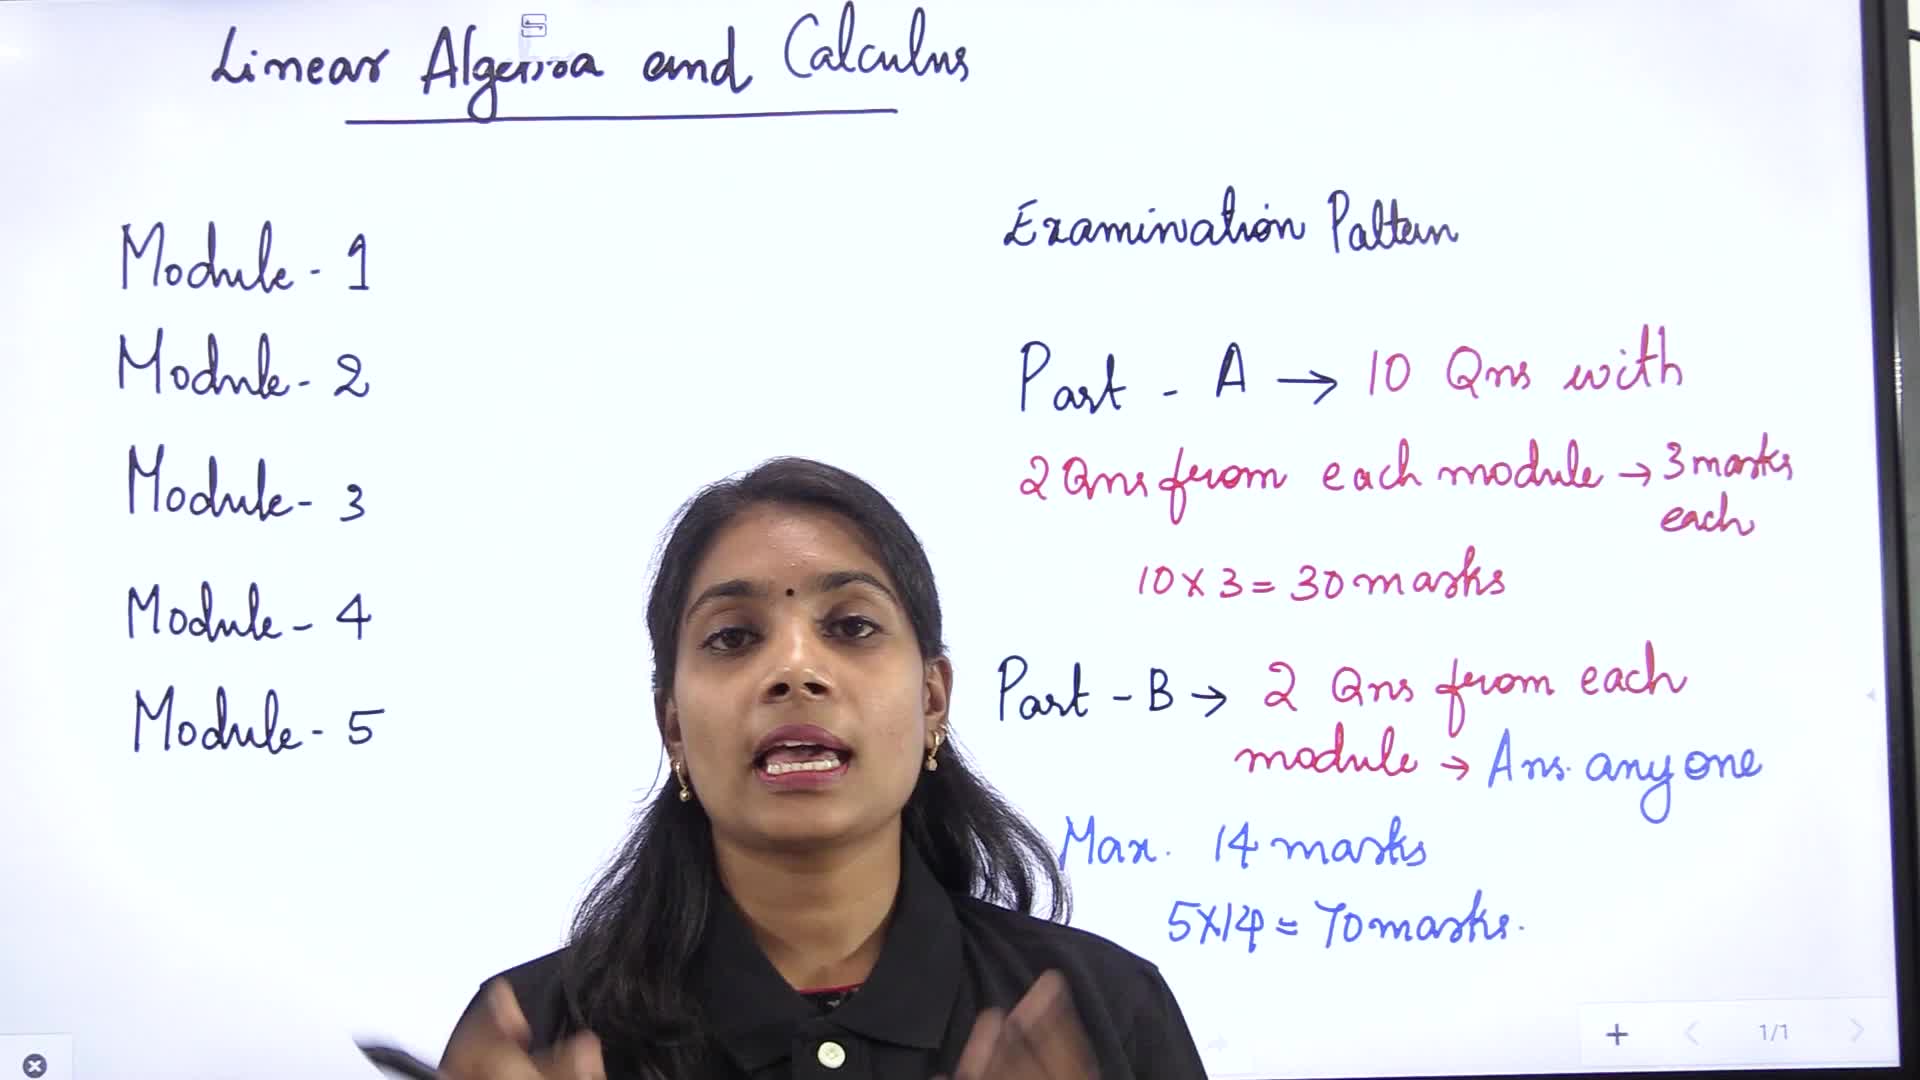 Linear Algebra and Calculus
Module - 1
Module - 2
Module - 3
Module - 4
Module - 5
Examination Pattern
Part - A → 10 Qns with
2 Qns from each module → 3 marks
each
10 x 3 = 30 marks
Part - B → 2 Qns from each
module → Ans. any one
Max. 14 marks
5 x 14 = 70 marks.
1/1